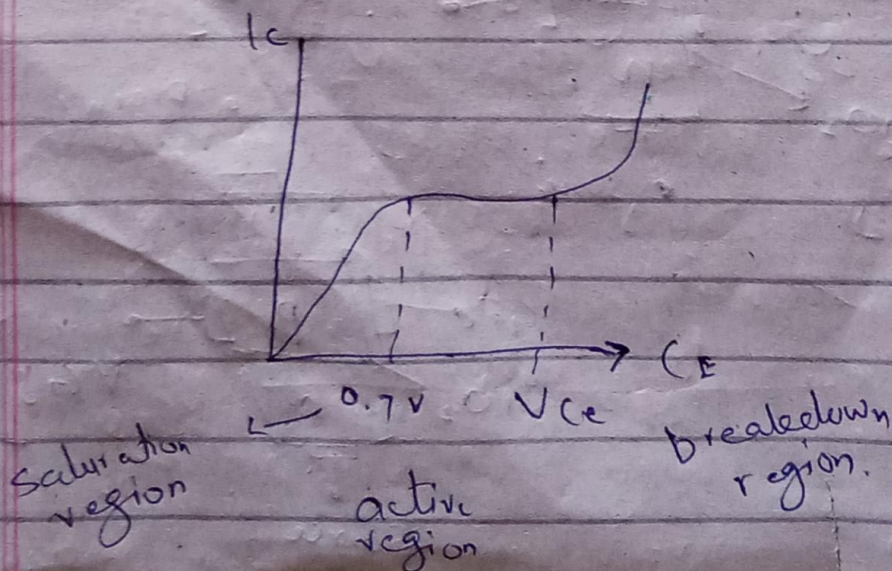 Ic
CE
0.7V
VCe
saturation
region
active
region
breakdown
region.